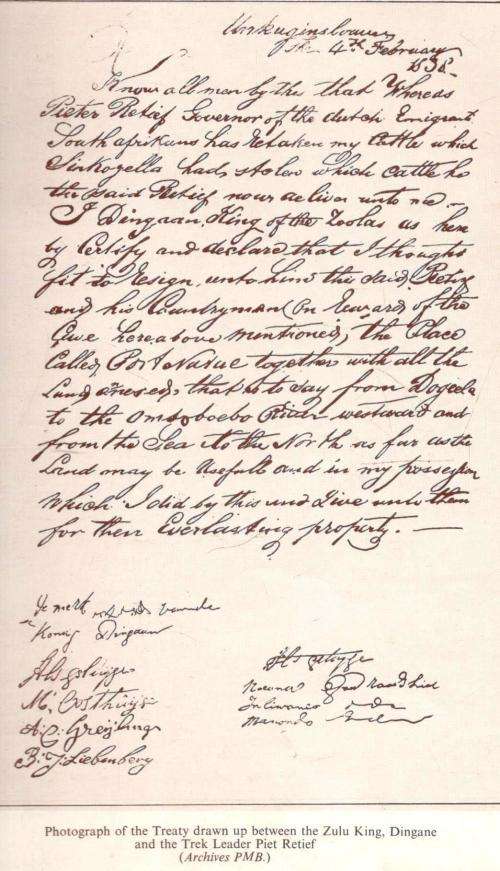 Unkuginsloave
the 4th February
1838
Know all men by this that Whereas
Pieter Retief Governor of the dutch Emigrant
South afrikans has Retaken my Cattle which
Sinkoyella had stolen which cattle he
the said Retief now deliver unto me —
I Dingaan, King of the Zoolas as here
by Certify and declare that I thought
fit to Resign unto him the said Retief
and his Countrymen (on Reward of the
Case hereabove mentioned) the Place
Called, Port Natal together with all the
Land annexed, that is to say from Dogeela
to the Omsoboebo River westward and
from the Sea to the North as far as the
Land may be Usefull and in my possession
which I did by this and Give unto them
for their Everlasting property. —
De merk
Konig Dingaan
M. Oosthuyse
A. C. Greyling
B. J. Liebenberg
Moaro
Juliwanie
Manondo
Photograph of the Treaty drawn up between the Zulu King, Dingane
and the Trek Leader Piet Retief
(Archives PMB.)